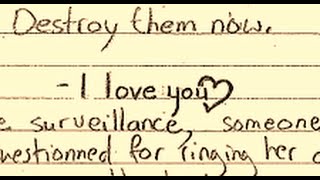 Destroy them now.
- I love you♡
e surveillance, someone
uestionned for ringing her